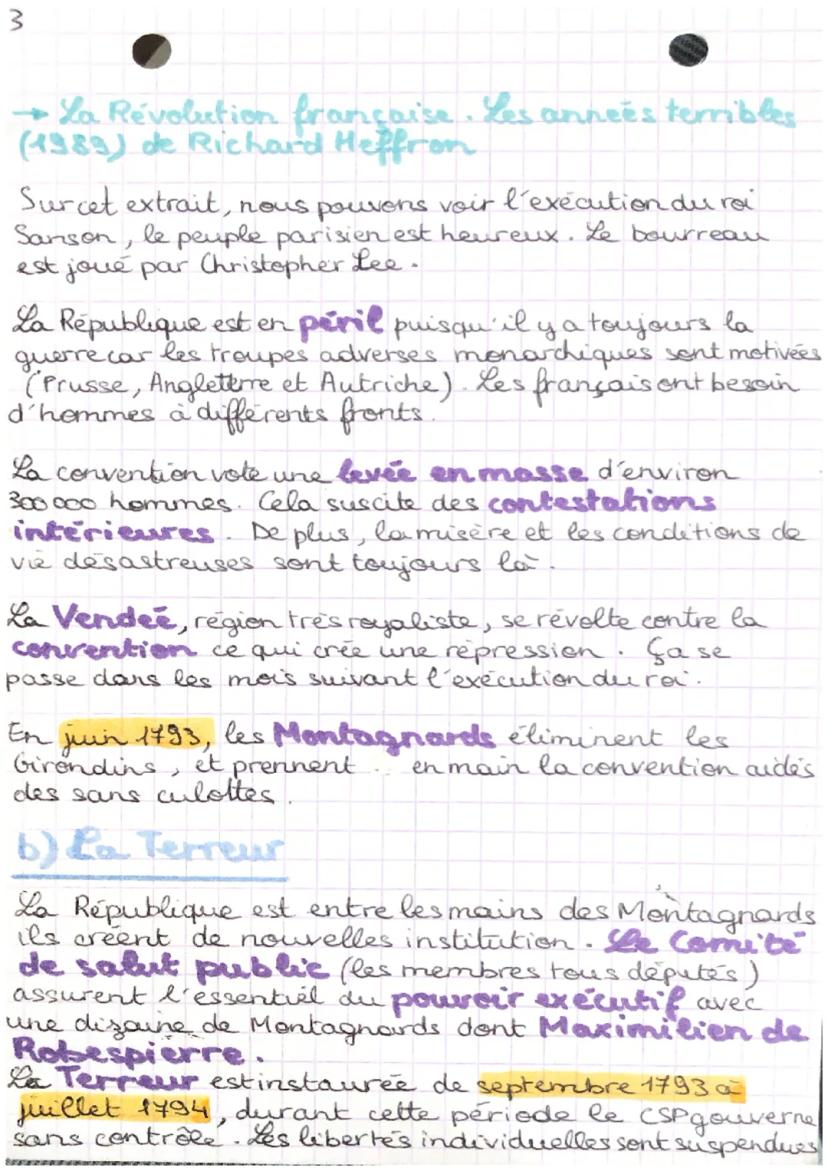 3
→ La Révolution française. Les années terribles
(1989) de Richard Heffron
Sur cet extrait, nous pouvons voir l'exécution du roi
Sanson, le peuple parisien est heureux. Le bourreau
est joué par Christopher Lee.
La République est en péril puisqu'il y a toujours la
guerre car les troupes adverses monarchiques sont motivées
(Prusse, Angleterre et Autriche). Les français ont besoin
d'hommes à différents fronts.
La convention vote une levée en masse d'environ
300 000 hommes. Cela suscite des contestations
intérieures. De plus, la misère et les conditions de
vie désastreuses sont toujours là.
La Vendée, région très royaliste, se révolte contre la
convention ce qui crée une répression. Ça se
passe dans les mois suivant l'exécution du roi.
En juin 1793, les Montagnards éliminent les
Girondins, et prennent en main la convention aidés
des sans culottes.
b) La Terreur
La République est entre les mains des Montagnards
ils créent de nouvelles institution. Le Comité
de salut public (les membres tous députés)
assurent l'essentiel du pouvoir exécutif avec
une dizaine de Montagnards dont Maximilien de
Robespierre.
La Terreur est instaurée de septembre 1793 à
juillet 1794, durant cette période le CSP gouverne
sans contrôle. Les libertés individuelles sont suspendues